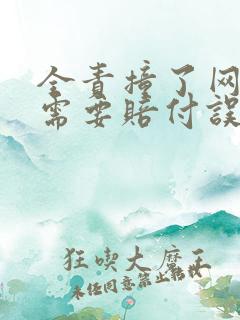 全责撞了网
需要赔付误
狂喫大魔王
未经同意禁止转载